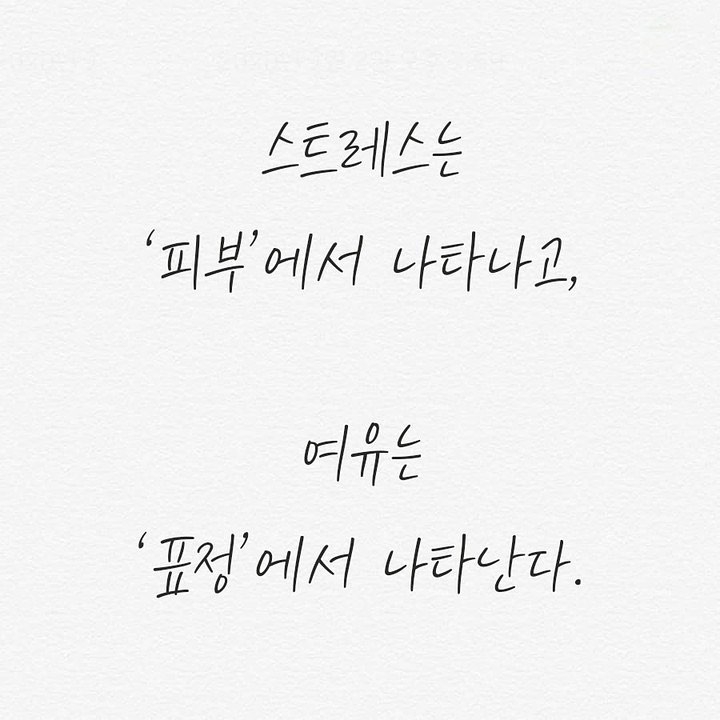 스트레스는
‘피부’에서 나타나고,
여유는
‘표정’에서 나타난다.